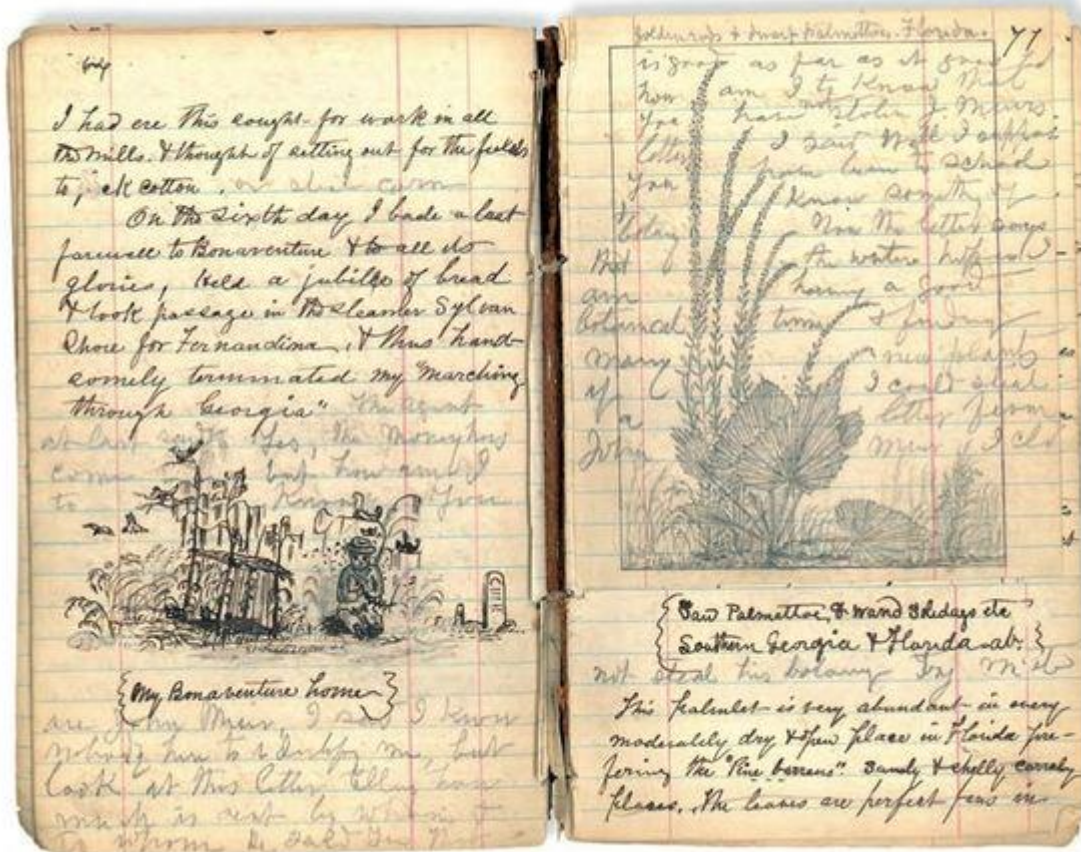 64
I had ere this sought for work in all
the mills. & thought of setting out for the fields
to pick cotton. or steal corn
On the sixth day I bade a last
farewell to Bonaventure & to all its
glories, held a jubilee of bread
& took passage in the steamer Sylvan
Shore for Fernandina, & thus hand-
somely terminated my "Marching
through Georgia" The agent
at last said Yes, the money has
come but how am I
to Know you
{My Bonaventure home}
are John Muir, I said I know
nobody here to identify me, but
look at this letter,
much is sent by whom &
to whom
goldenrods & dwarf palmettoes. Florida.
77
is good as far as it goes
how am I to Know that
You have not stolen J. Muirs
letter I said Well I suppose
You
Know something of
botany Now the letter says
that the writer hopes I
am having a good
botanical time & finding
many new plants
if I could steal
a letter from
John Muir I
{Saw Palmettoe, & wand etc
Southern Georgia & Florida}
not steal his botany
This palmlet is very abundant in every
moderately dry & open place in Florida pre-
fering the "Pine barrens". Sandy & shelly
places. The leaves are perfect fans in